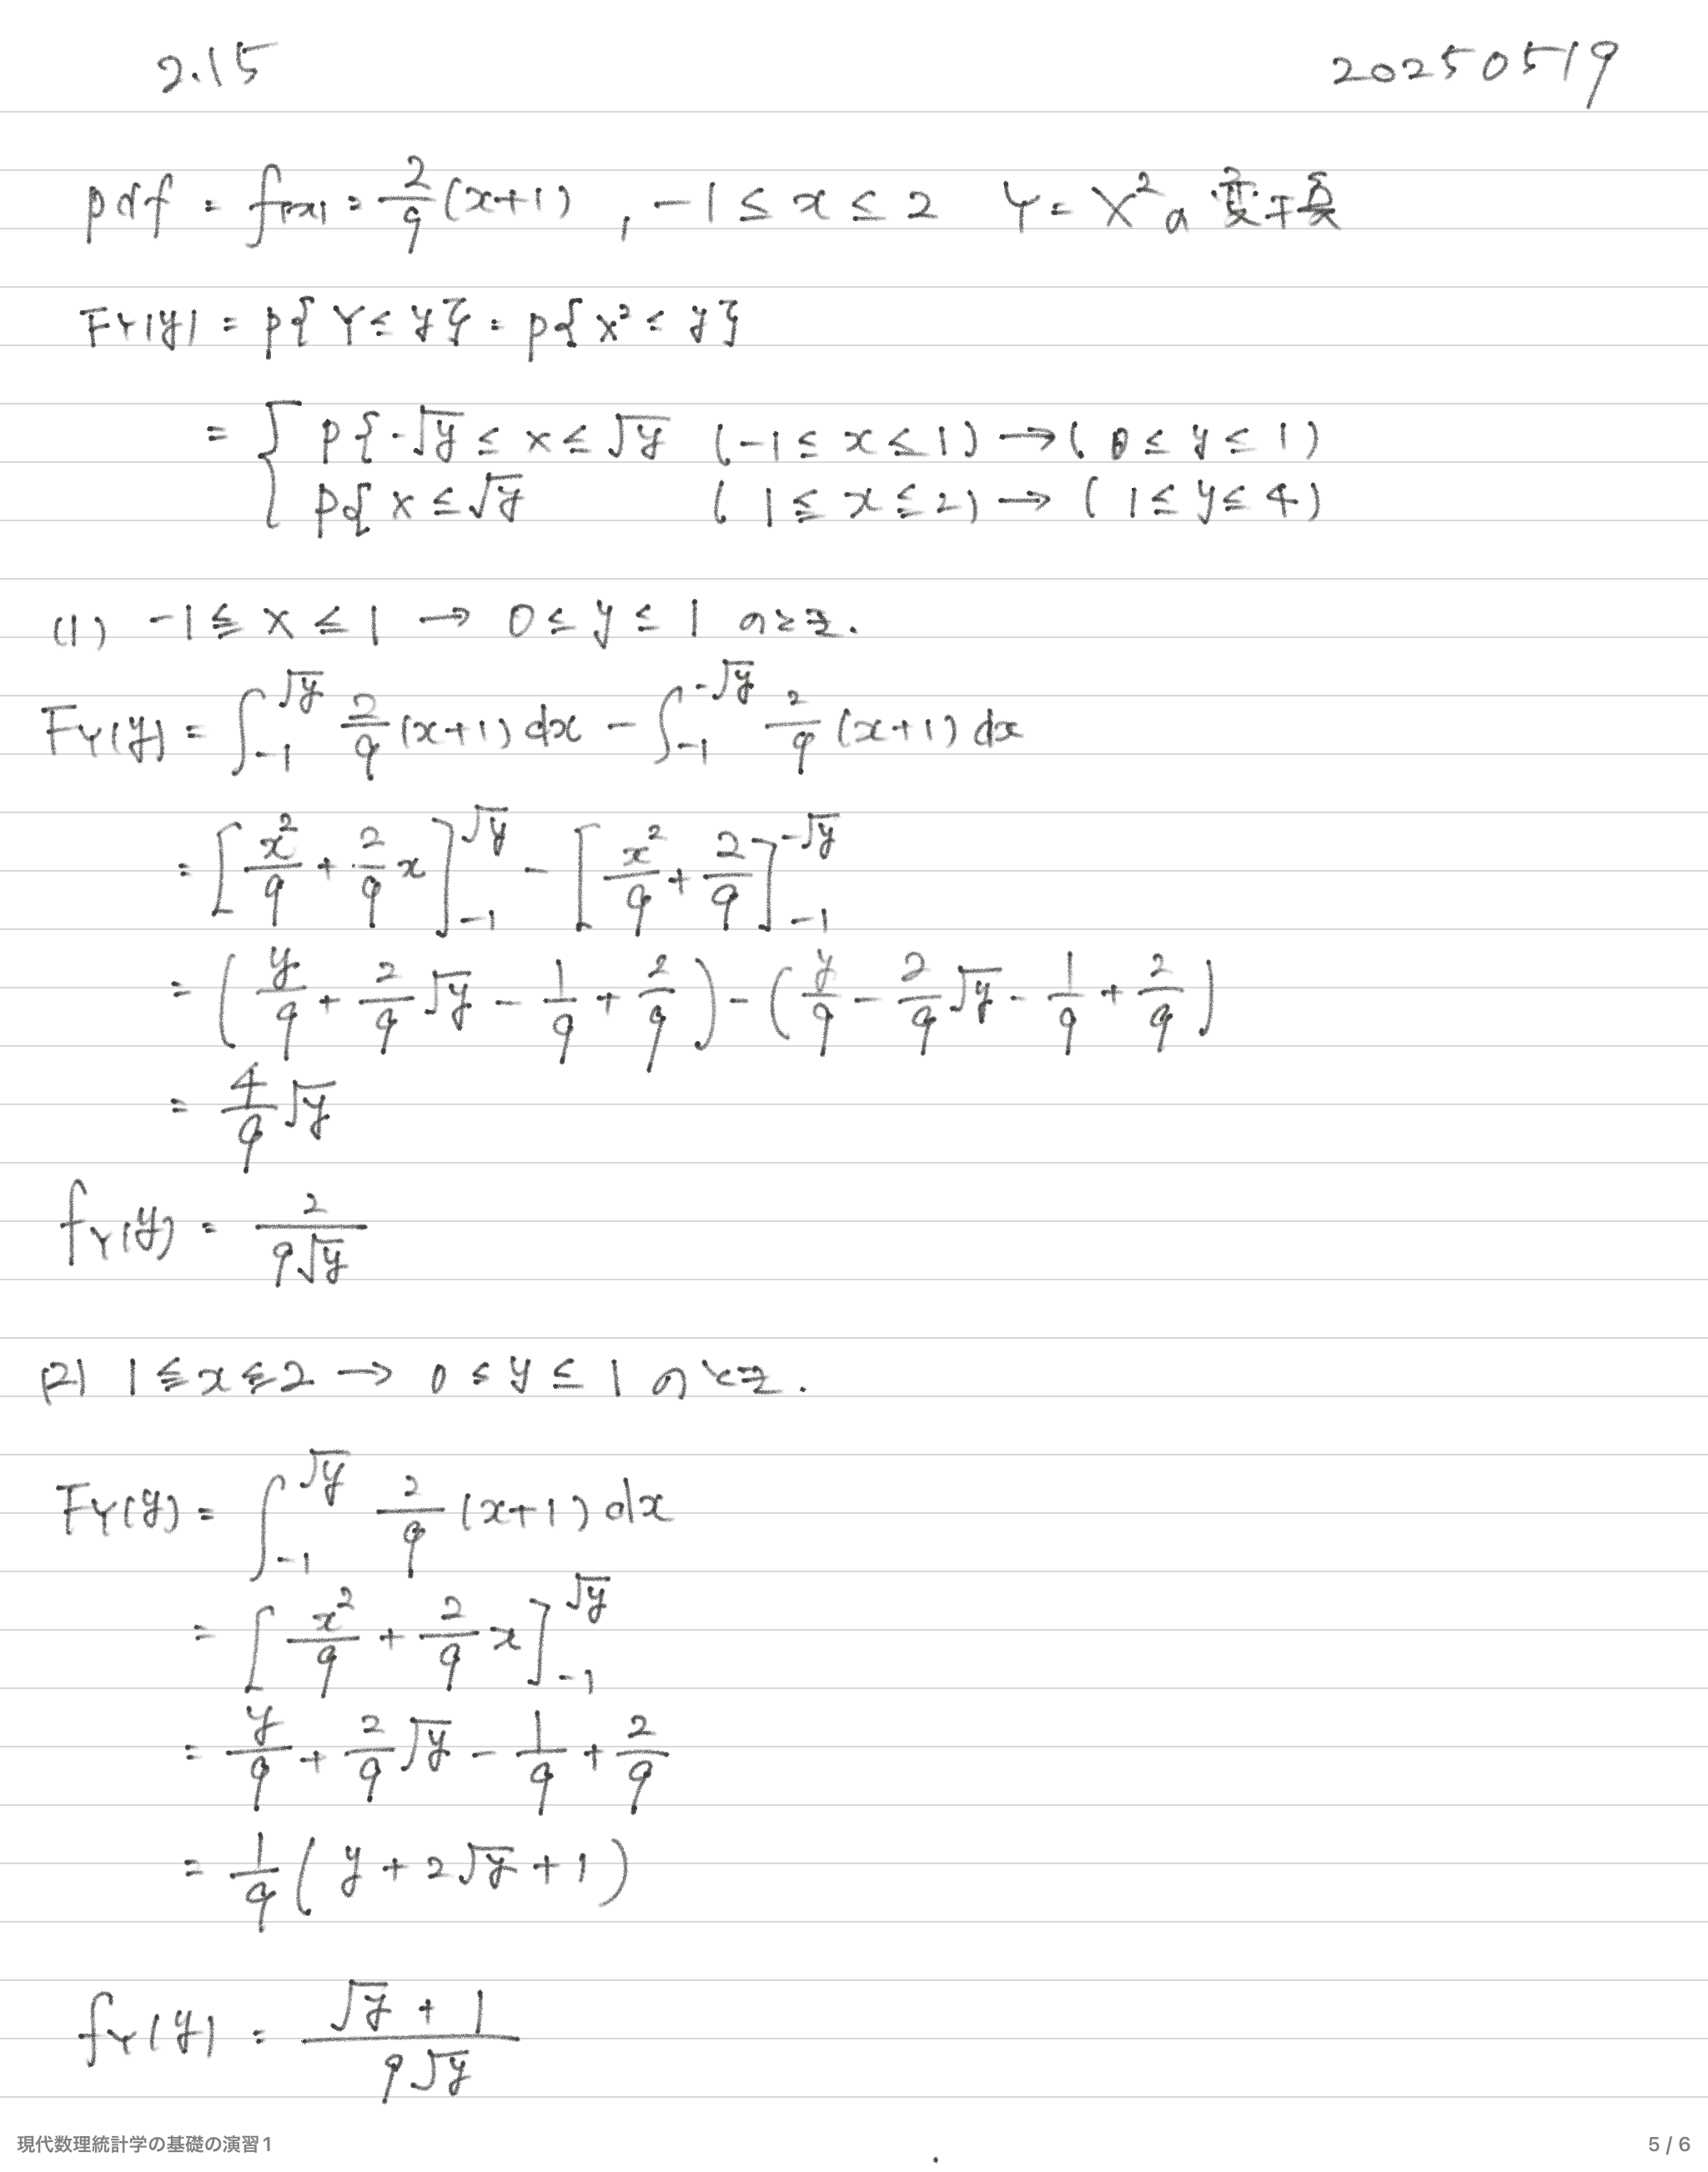 2.15 20250519
pdf = f_{(x)} = \frac{2}{9}(x+1) , -1 ≤ x ≤ 2 Y = X^2 の変換
F_Y(y) = p{Y ≤ y} = p{x^2 ≤ y}
= { p{-√y ≤ x ≤ √y (-1 ≤ x ≤ 1) → (0 ≤ y ≤ 1)
p{x ≤ √y (1 ≤ x ≤ 2) → (1 ≤ y ≤ 4)
(1) -1 ≦ x ≤ 1 → 0 ≤ y ≤ 1 のとき.
F_Y(y) = \int_{-1}^{√y} \frac{2}{9}(x+1)dx - \int_{-1}^{-√y} \frac{2}{9}(x+1)dx
= [\frac{x^2}{9} + \frac{2}{9}x]_{-1}^{√y} - [\frac{x^2}{9} + \frac{2}{9}]_{-1}^{-√y}
= (\frac{y}{9} + \frac{2}{9}√y - \frac{1}{9} + \frac{2}{9}) - (\frac{y}{9} - \frac{2}{9}√y - \frac{1}{9} + \frac{2}{9})
= \frac{4}{9}√y
f_Y(y) = \frac{2}{9√y}
(2) 1 ≦ x ≦ 2 → 0 ≤ y ≤ 1 のとき.
F_Y(y) = \int_{-1}^{√y} \frac{2}{9}(x+1)dx
= [\frac{x^2}{9} + \frac{2}{9}x]_{-1}^{√y}
= \frac{y}{9} + \frac{2}{9}√y - \frac{1}{9} + \frac{2}{9}
= \frac{1}{9}(y + 2√y + 1)
f_Y(y) = \frac{√y + 1}{9√y}
現代数理統計学の基礎の演習1 5 / 6